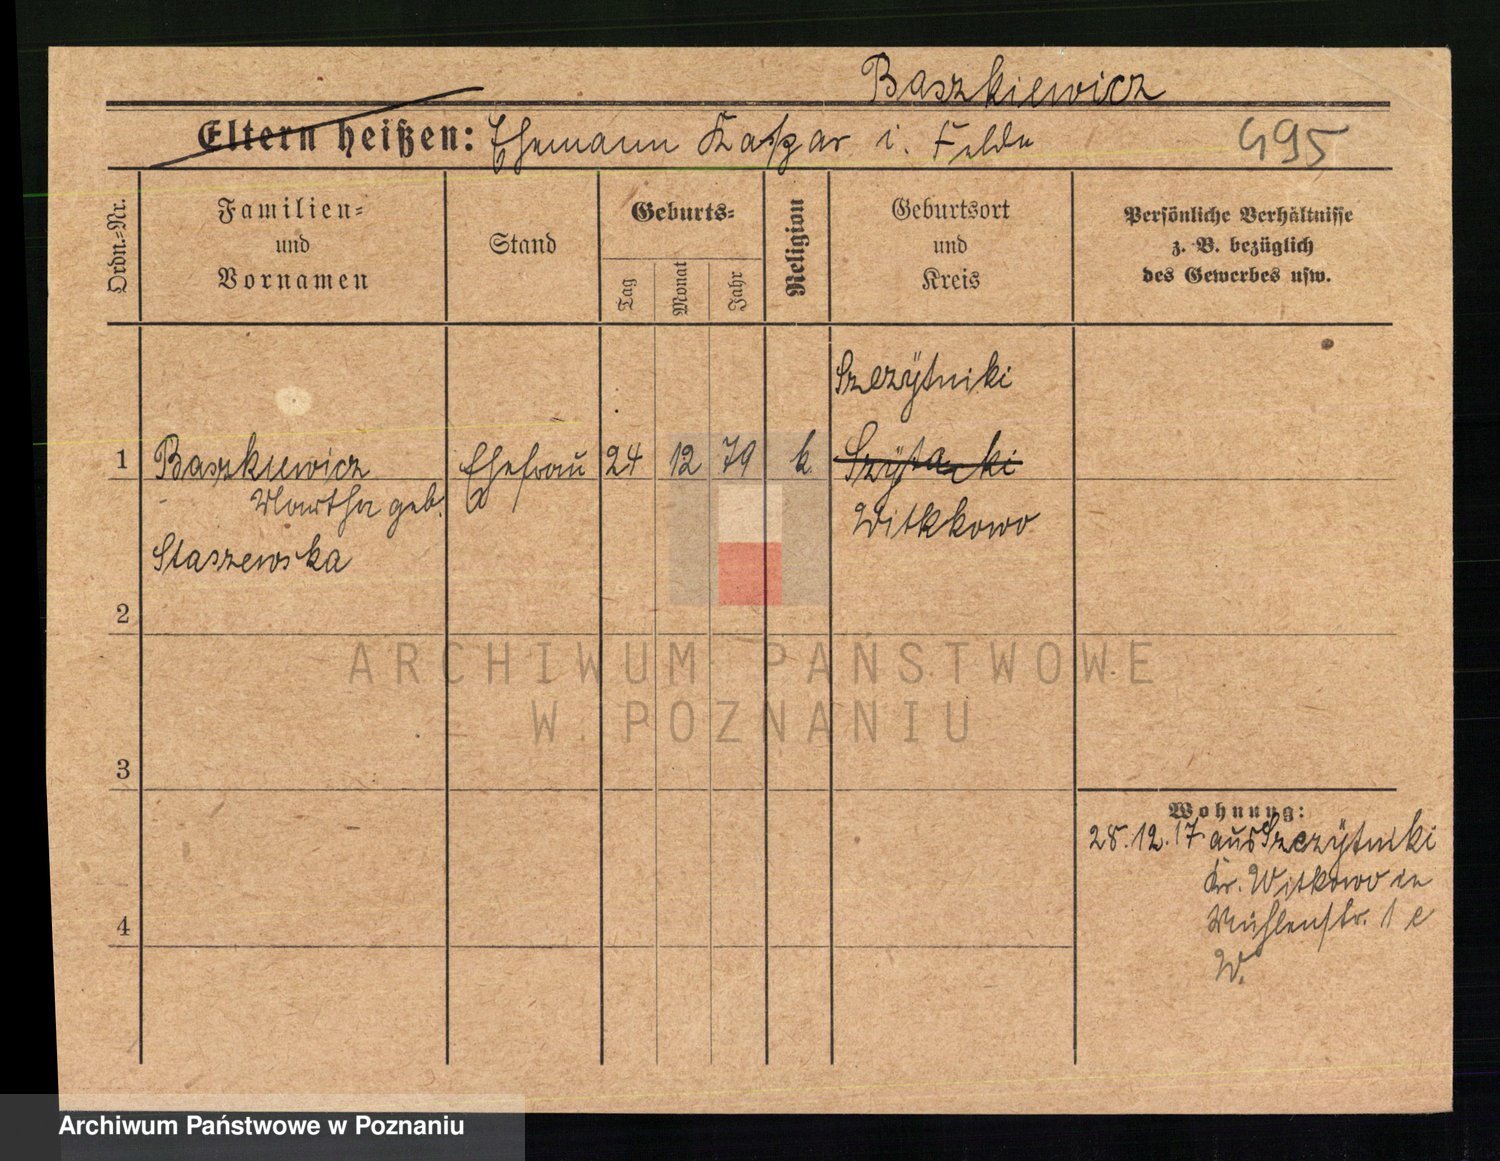 Baszkiewicz
Eltern heißen: Ehemann Kaspar i. Felde
495
Ordn.-Nr.
Familien-
und
Vornamen
Stand
Geburts-
Tag
Monat
Jahr
Religion
Geburtsort
und
Kreis
Persönliche Verhältnisse
z. B. bezüglich
des Gewerbes usw.
Szczÿtniki
1 Baszkiewicz Ehefrau 24 12 79 k.
Martha geb.
Witkkowo
Staszewska
2
ARCHIWUM PAŃSTWOWE
W POZNANIU
3
Wohnung:
28.12.17 aus Szczÿtniki
Kr. Witkowo in
Mühlenstr. 1 c
W.
4
Archiwum Państwowe w Poznaniu